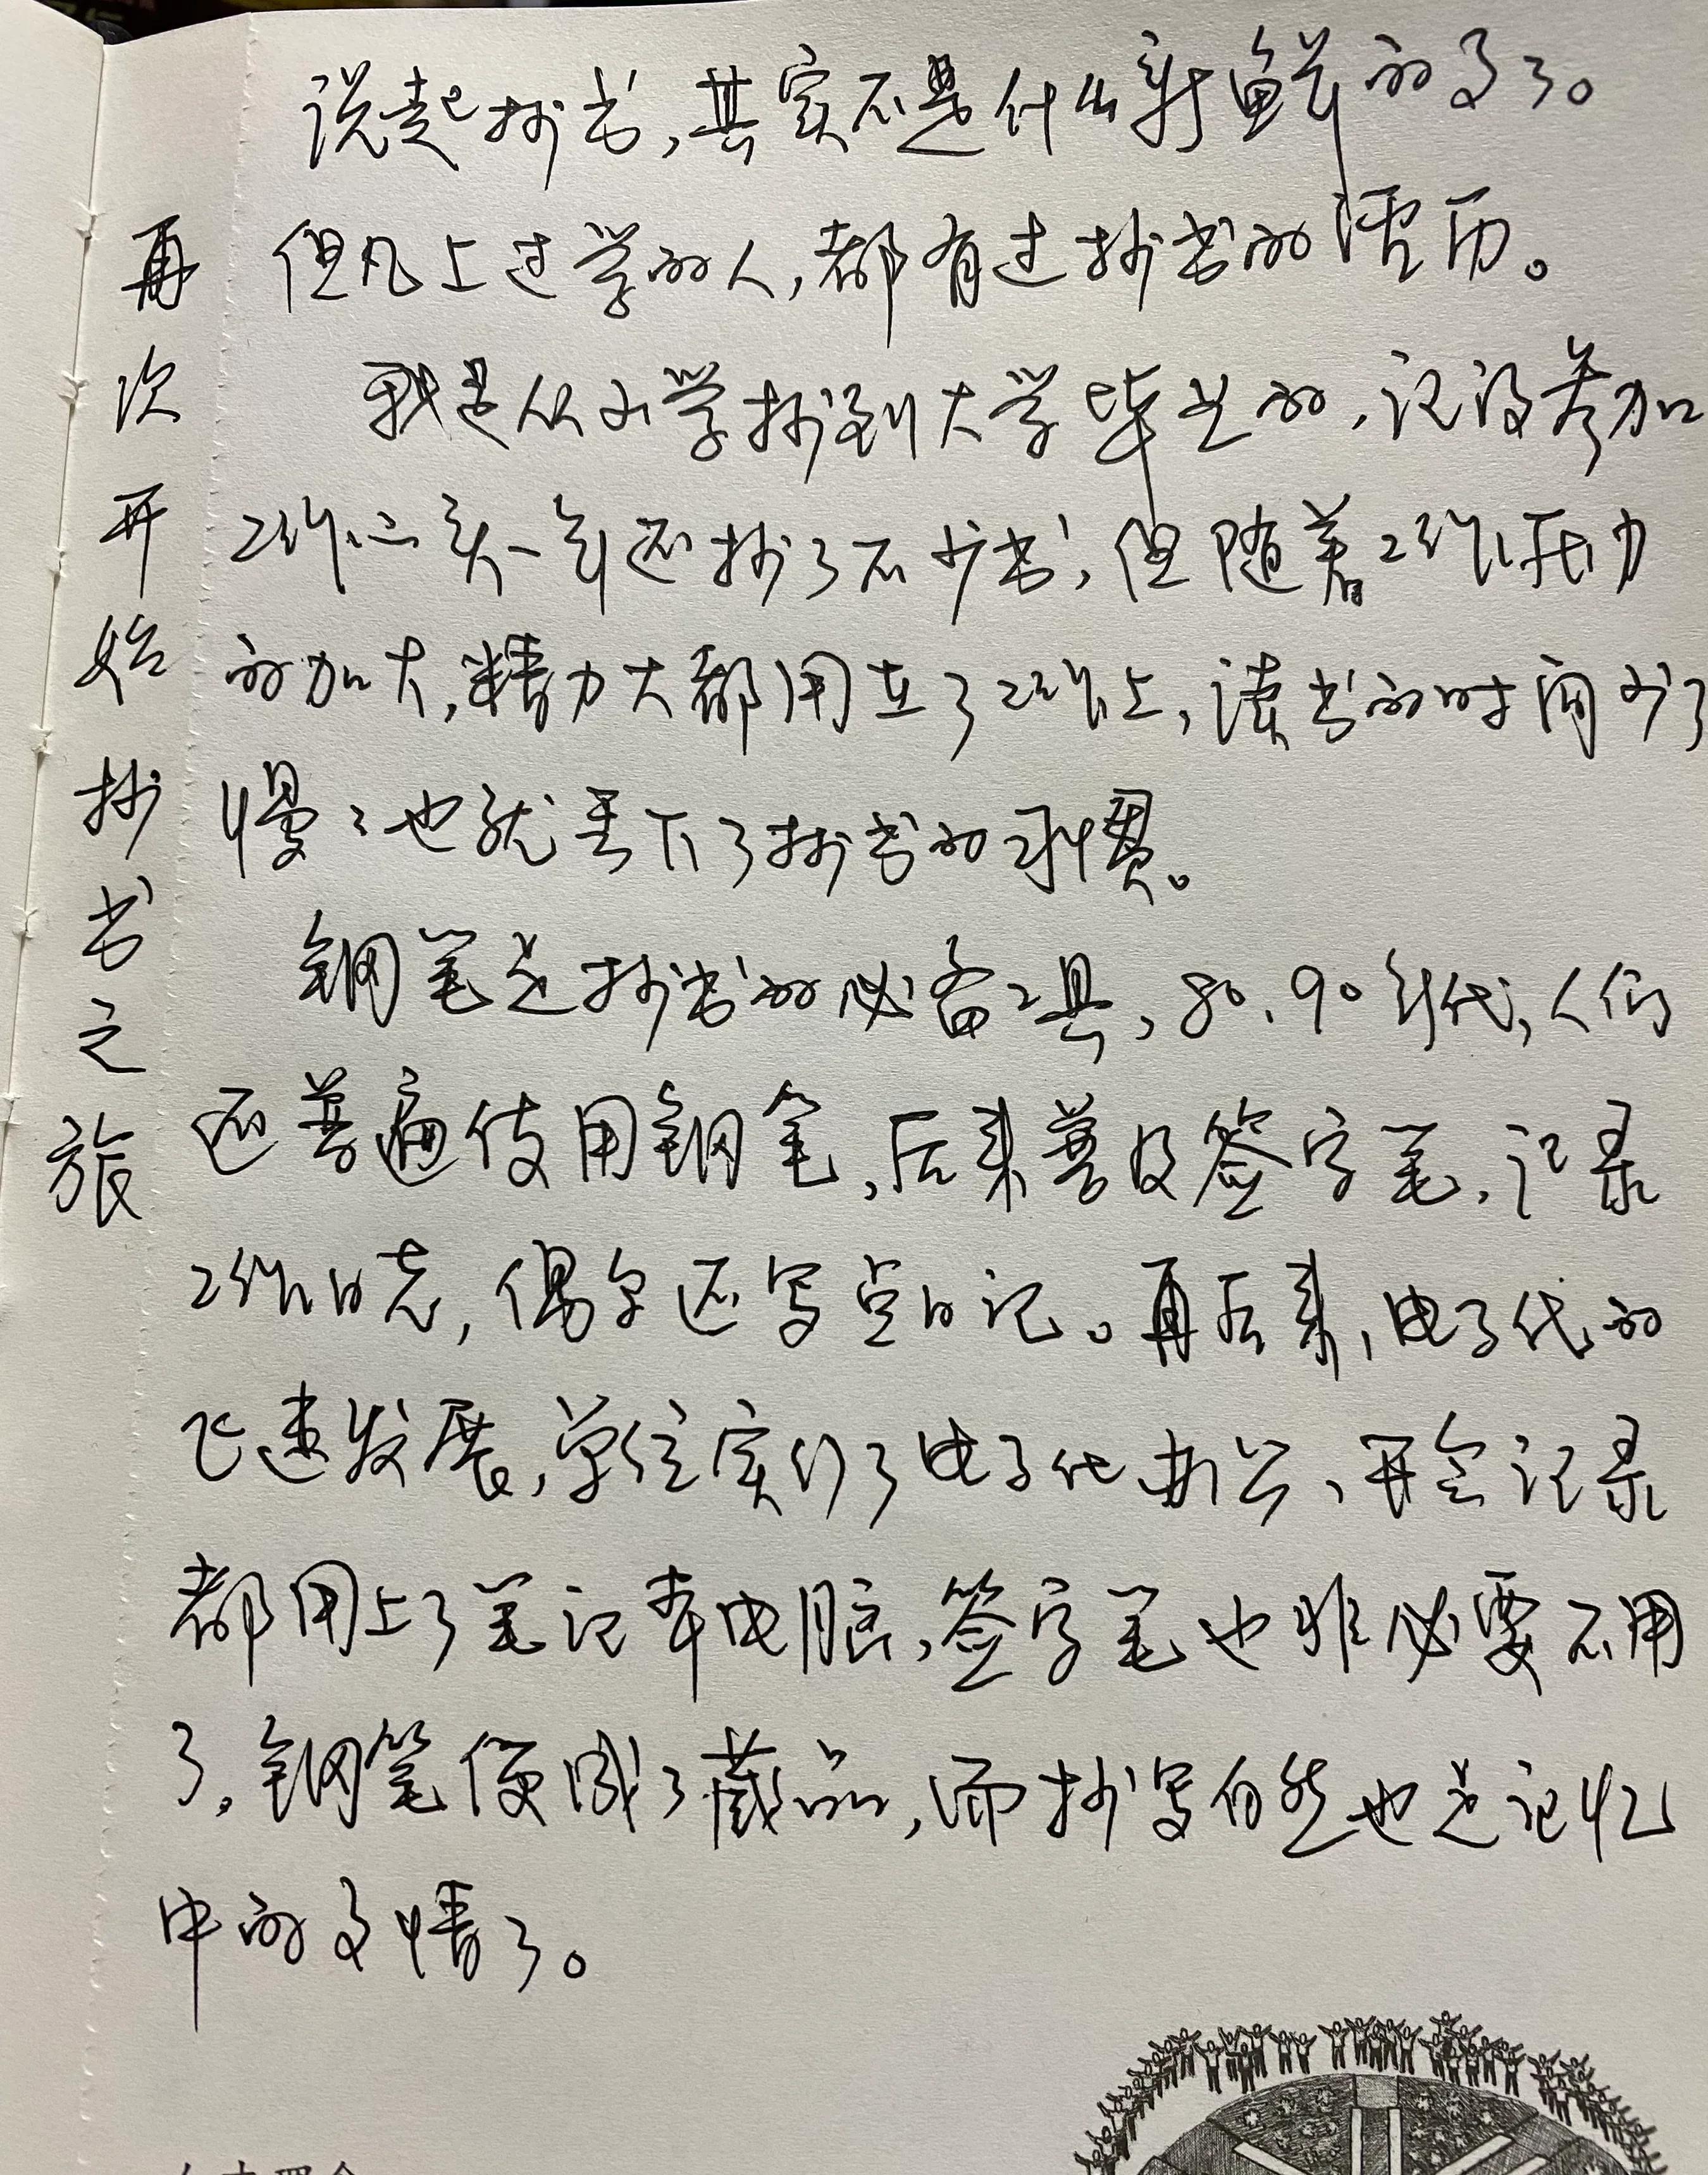 再次开始抄书之旅
说起抄书,其实不是什么新鲜的事了。
但凡上过学的人,都有过抄书的经历。
我是从小学抄到大学毕业的,记得参加
工作之头一年还抄了不少书,但随着工作压力
的加大,精力大都用在了工作上,读书的时间少了
慢慢也就丢下了抄书的习惯。
钢笔是抄书的必备工具,80、90年代,人们
还普遍使用钢笔,后来普及签字笔,记录
工作日志,偶尔还写点日记。再后来,电子代的
飞速发展,单位实行了电子化办公,开会记录
都用上了笔记本电脑,签字笔也非必要不用
了。钢笔便成了藏品,而抄写自然也是记忆
中的事情了。